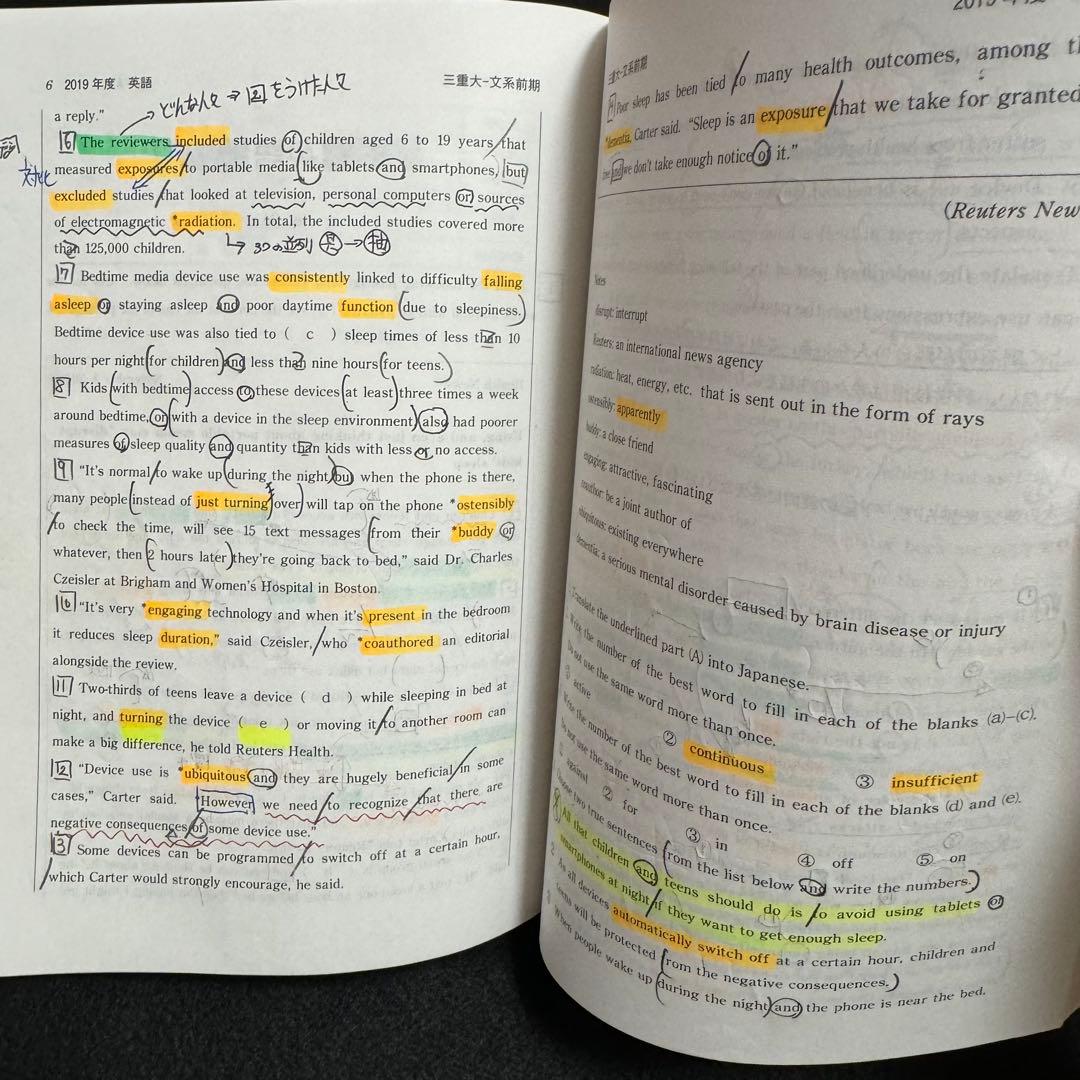 6 2019年度 英語 三重大-文系前期
どんな人を→ をうけた人て
a reply."
6 The reviewers included studies of children aged 6 to 19 years that
対比
measured exposures to portable media like tablets and smartphones, but
excluded studies that looked at television, personal computers or sources
of electromagnetic *radiation. In total, the included studies covered more
→ 3つの並列 具→抽
than 125,000 children.
7 Bedtime media device use was consistently linked to difficulty falling
asleep or staying asleep and poor daytime function (due to sleepiness.)
Bedtime device use was also tied to ( c ) sleep times of less than 10
hours per night (for children) and less than nine hours (for teens.)
8 Kids (with bedtime) access to these devices (at least) three times a week
around bedtime, or (with a device in the sleep environment) also had poorer
measures of sleep quality and quantity than kids with less or no access.
9 "It's normal to wake up (during the night) but when the phone is there,
many people (instead of just turning over) will tap on the phone *ostensibly
to check the time, will see 15 text messages (from their *buddy or
whatever, then (2 hours later) they're going back to bed," said Dr. Charles
Czeisler at Brigham and Women's Hospital in Boston.
10 "It's very *engaging technology and when it's present in the bedroom
it reduces sleep duration," said Czeisler, who *coauthored an editorial
alongside the review.
11 Two-thirds of teens leave a device ( d ) while sleeping in bed at
night, and turning the device ( e ) or moving it to another room can
make a big difference, he told Reuters Health.
12 "Device use is *ubiquitous and they are hugely beneficial in some
cases," Carter said. "However we need to recognize that there are
negative consequences of some device use."
13 Some devices can be programmed to switch off at a certain hour,
which Carter would strongly encourage, he said.
三重大-文系前期
Poor sleep has been tied to many health outcomes, among
*dementia, Carter said. "Sleep is an exposure that we take for granted
and we don't take enough notice of it."
(Reuters New
Notes
disrupt: interrupt
Reuters: an international news agency
radiation: heat, energy, etc. that is sent out in the form of rays
ostensibly: apparently
buddy: a close friend
engaging: attractive, fascinating
coauthor: be a joint author of
ubiquitous: existing everywhere
dementia: a serious mental disorder caused by brain disease or injury
Translate the underlined part (A) into Japanese.
Write the number of the best word to fill in each of the blanks (a)-(c).
Do not use the same word more than once.
① active ② continuous ③ insufficient
Write the number of the best word to fill in each of the blanks (d) and (e).
Do not use the same word more than once.
① against ② for ③ in ④ off ⑤ on
Choose two true sentences (from the list below and write the numbers.)
All that children and teens should do is to avoid using tablets or
smartphones at night if they want to get enough sleep.
2 As all devices automatically switch off at a certain hour, children and
teens will be protected (from the negative consequences.)
3 When people wake up (during the night) and the phone is near the bed,